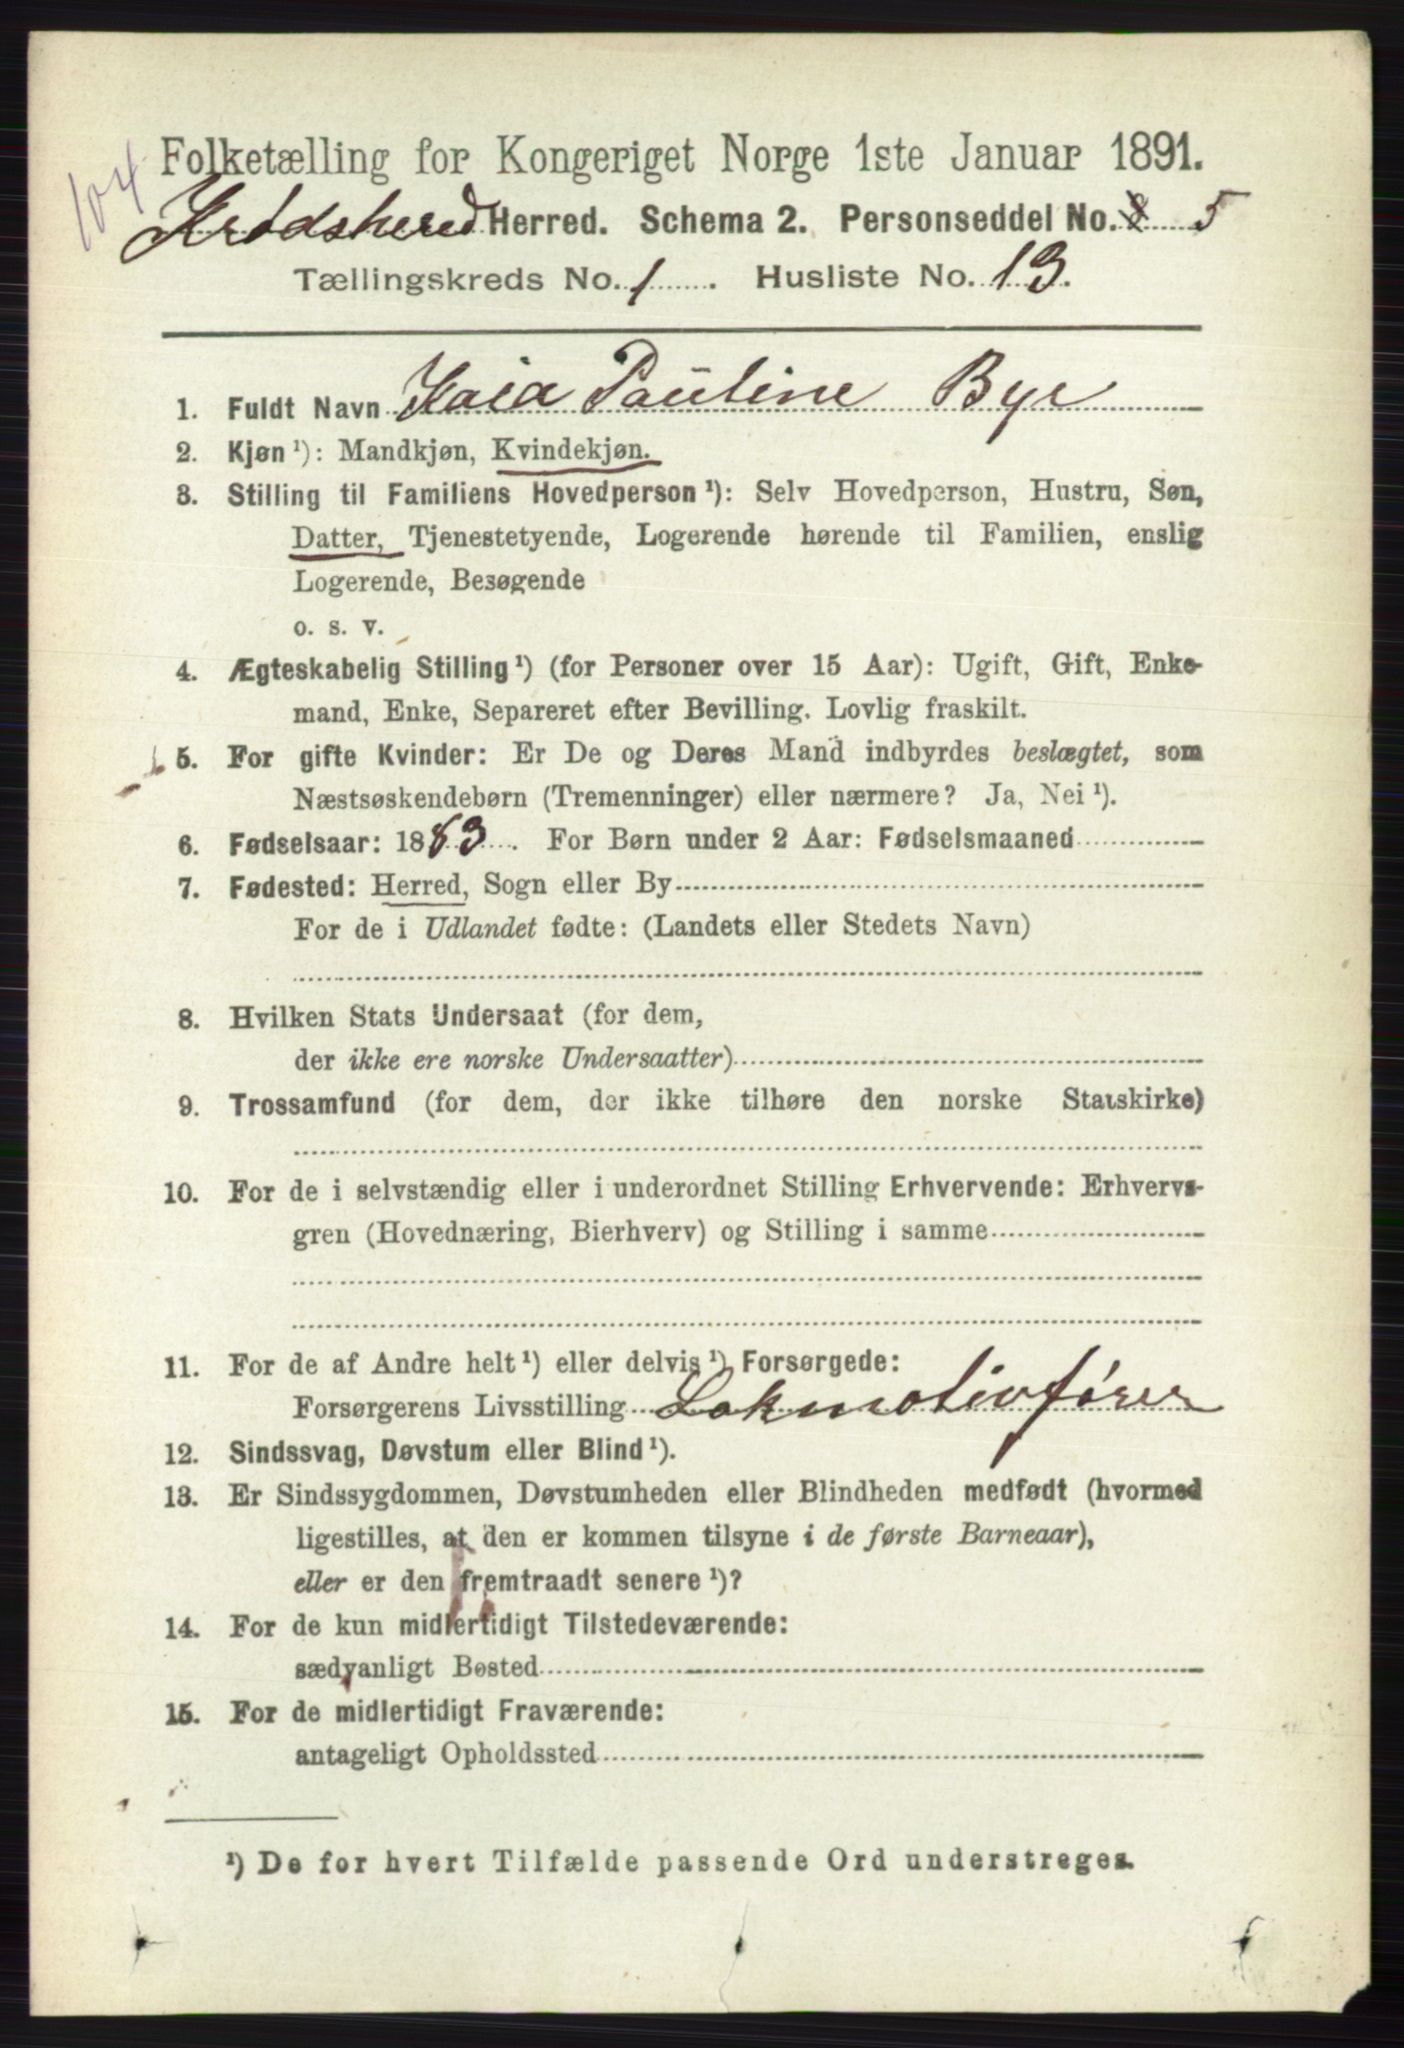 104
Folketælling for Kongeriget Norge 1ste Januar 1891.
Krødshered Herred. Schema 2. Personseddel No. 8 5
Tællingskreds No. 1. Husliste No. 13.
1. Fuldt Navn Kaia Pauline Bye
2. Kjøn ¹): Mandkjøn, Kvindekjøn.
3. Stilling til Familiens Hovedperson ¹): Selv Hovedperson, Hustru, Søn,
Datter, Tjenestetyende, Logerende hørende til Familien, enslig
Logerende, Besøgende
o. s. v.
4. Ægteskabelig Stilling ¹) (for Personer over 15 Aar): Ugift, Gift, Enke-
mand, Enke, Separeret efter Bevilling. Lovlig fraskilt.
5. For gifte Kvinder: Er De og Deres Mand indbyrdes beslægtet, som
Næstsøskendebørn (Tremenninger) eller nærmere? Ja, Nei ¹).
6. Fødselsaar: 1883. For Børn under 2 Aar: Fødselsmaaned
7. Fødested: Herred, Sogn eller By
For de i Udlandet fødte: (Landets eller Stedets Navn)
8. Hvilken Stats Undersaat (for dem,
der ikke ere norske Undersaatter)
9. Trossamfund (for dem, der ikke tilhøre den norske Statskirke)
10. For de i selvstændig eller i underordnet Stilling Erhvervende: Erhvervs-
gren (Hovednæring, Bierhverv) og Stilling i samme
11. For de af Andre helt ¹) eller delvis ¹) Forsørgede:
Forsørgerens Livsstilling Lokmotivfører
12. Sindssvag, Døvstum eller Blind ¹).
13. Er Sindssygdommen, Døvstumheden eller Blindheden medfødt (hvormed
ligestilles, at den er kommen tilsyne i de første Barneaar),
eller er den fremtraadt senere ¹)?
14. For de kun midlertidigt Tilstedeværende:
sædvanligt Bosted
15. For de midlertidigt Fraværende:
antageligt Opholdssted
¹) De for hvert Tilfælde passende Ord understreges.